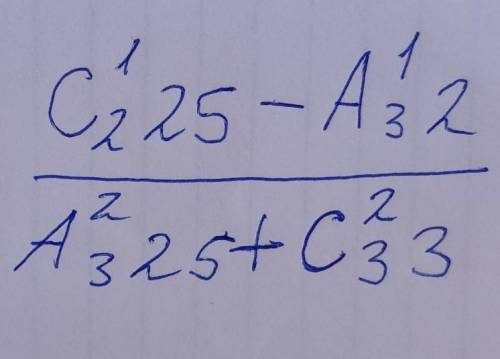 C₂¹25 − A₃¹2
A₃²25 + C₃²3